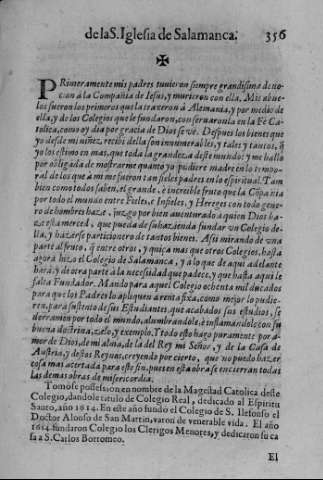 de la S. Iglesia de Salamanca. 356
✠
PRimeramente mis padres tuuieron siempre grandissima deuo-
cion à la Compañia de Iesus, y murieron con ella. Mis abue-
los fueron los primeros que la traxeron à Alemania, y por medio de
ella, y de los Colegios que le fundaron, conseruaron la en la Fè Ca-
tolica, como oy dia por gracia de Dios se vè. Despues los bienes que
yo desde mi niñez, recibi della son innumerables, y tales y tantos, q̃
yo los estimo en mas, que toda la grandeza deste mundo: y me hallo
por obligada de mostrarme quanto yo pudiere madre en lo tempo-
ral de los que à mi me fueron tan fieles padres en lo espiritual. Tam
bien como todos saben, el grande, è increible fruto que la Cõpañia
por todo el mundo entre Fieles, è Infieles, y Hereges con todo gene-
ro de hombres haze, juzgo por bien auenturado a quien Dios ha-
ze esta merced, que pueda de su hazienda fundar vn Colegio de-
lla, y hazerse participonero de tantos bienes. Assi mirando de vna
parte al fruto, q̃ entre otros, y quiçà mas que otros Colegios, hasta
agora hizo el Colegio de Salamanca, y a lo que de aqui adelante
harà, y de otra parte à la necessidad que padece, y que hasta aqui le
falta Fundador. Mando para aquel Colegio ochenta mil ducados
para que los Padres lo apliquen a renta fixa, como mejor lo pudie-
ren, para sustento de sus Estudiantes, que acabados sus estudios, se
derramen por todo el mundo, alumbrandole, è inflamandolo con su
buena doctrina, zelo, y exemplo. Y todo esto hago puramente por a-
mor de Dios, de mi alma, de la del Rey mi Señor, y de la Casa de
Austria, y destos Reynos, creyendo por cierto, que no puedo hazer
cosa mas acertada para este fin, pues en esta obra se encierran todas
las demas obras de misericordia.
Tomose possession en nombre de la Magestad Catolica deste
Colegio, dandole titulo de Colegio Real, dedicado al Espiritu
Santo, año 1614. En este año fundò el Colegio de S. Ilefonso el
Doctor Alonso de San Martin, varon de venerable vida. El año
1614 fundaron Colegio los Clerigos Menores, y dedicaron su ca
sa a S. Carlos Borromeo.
El